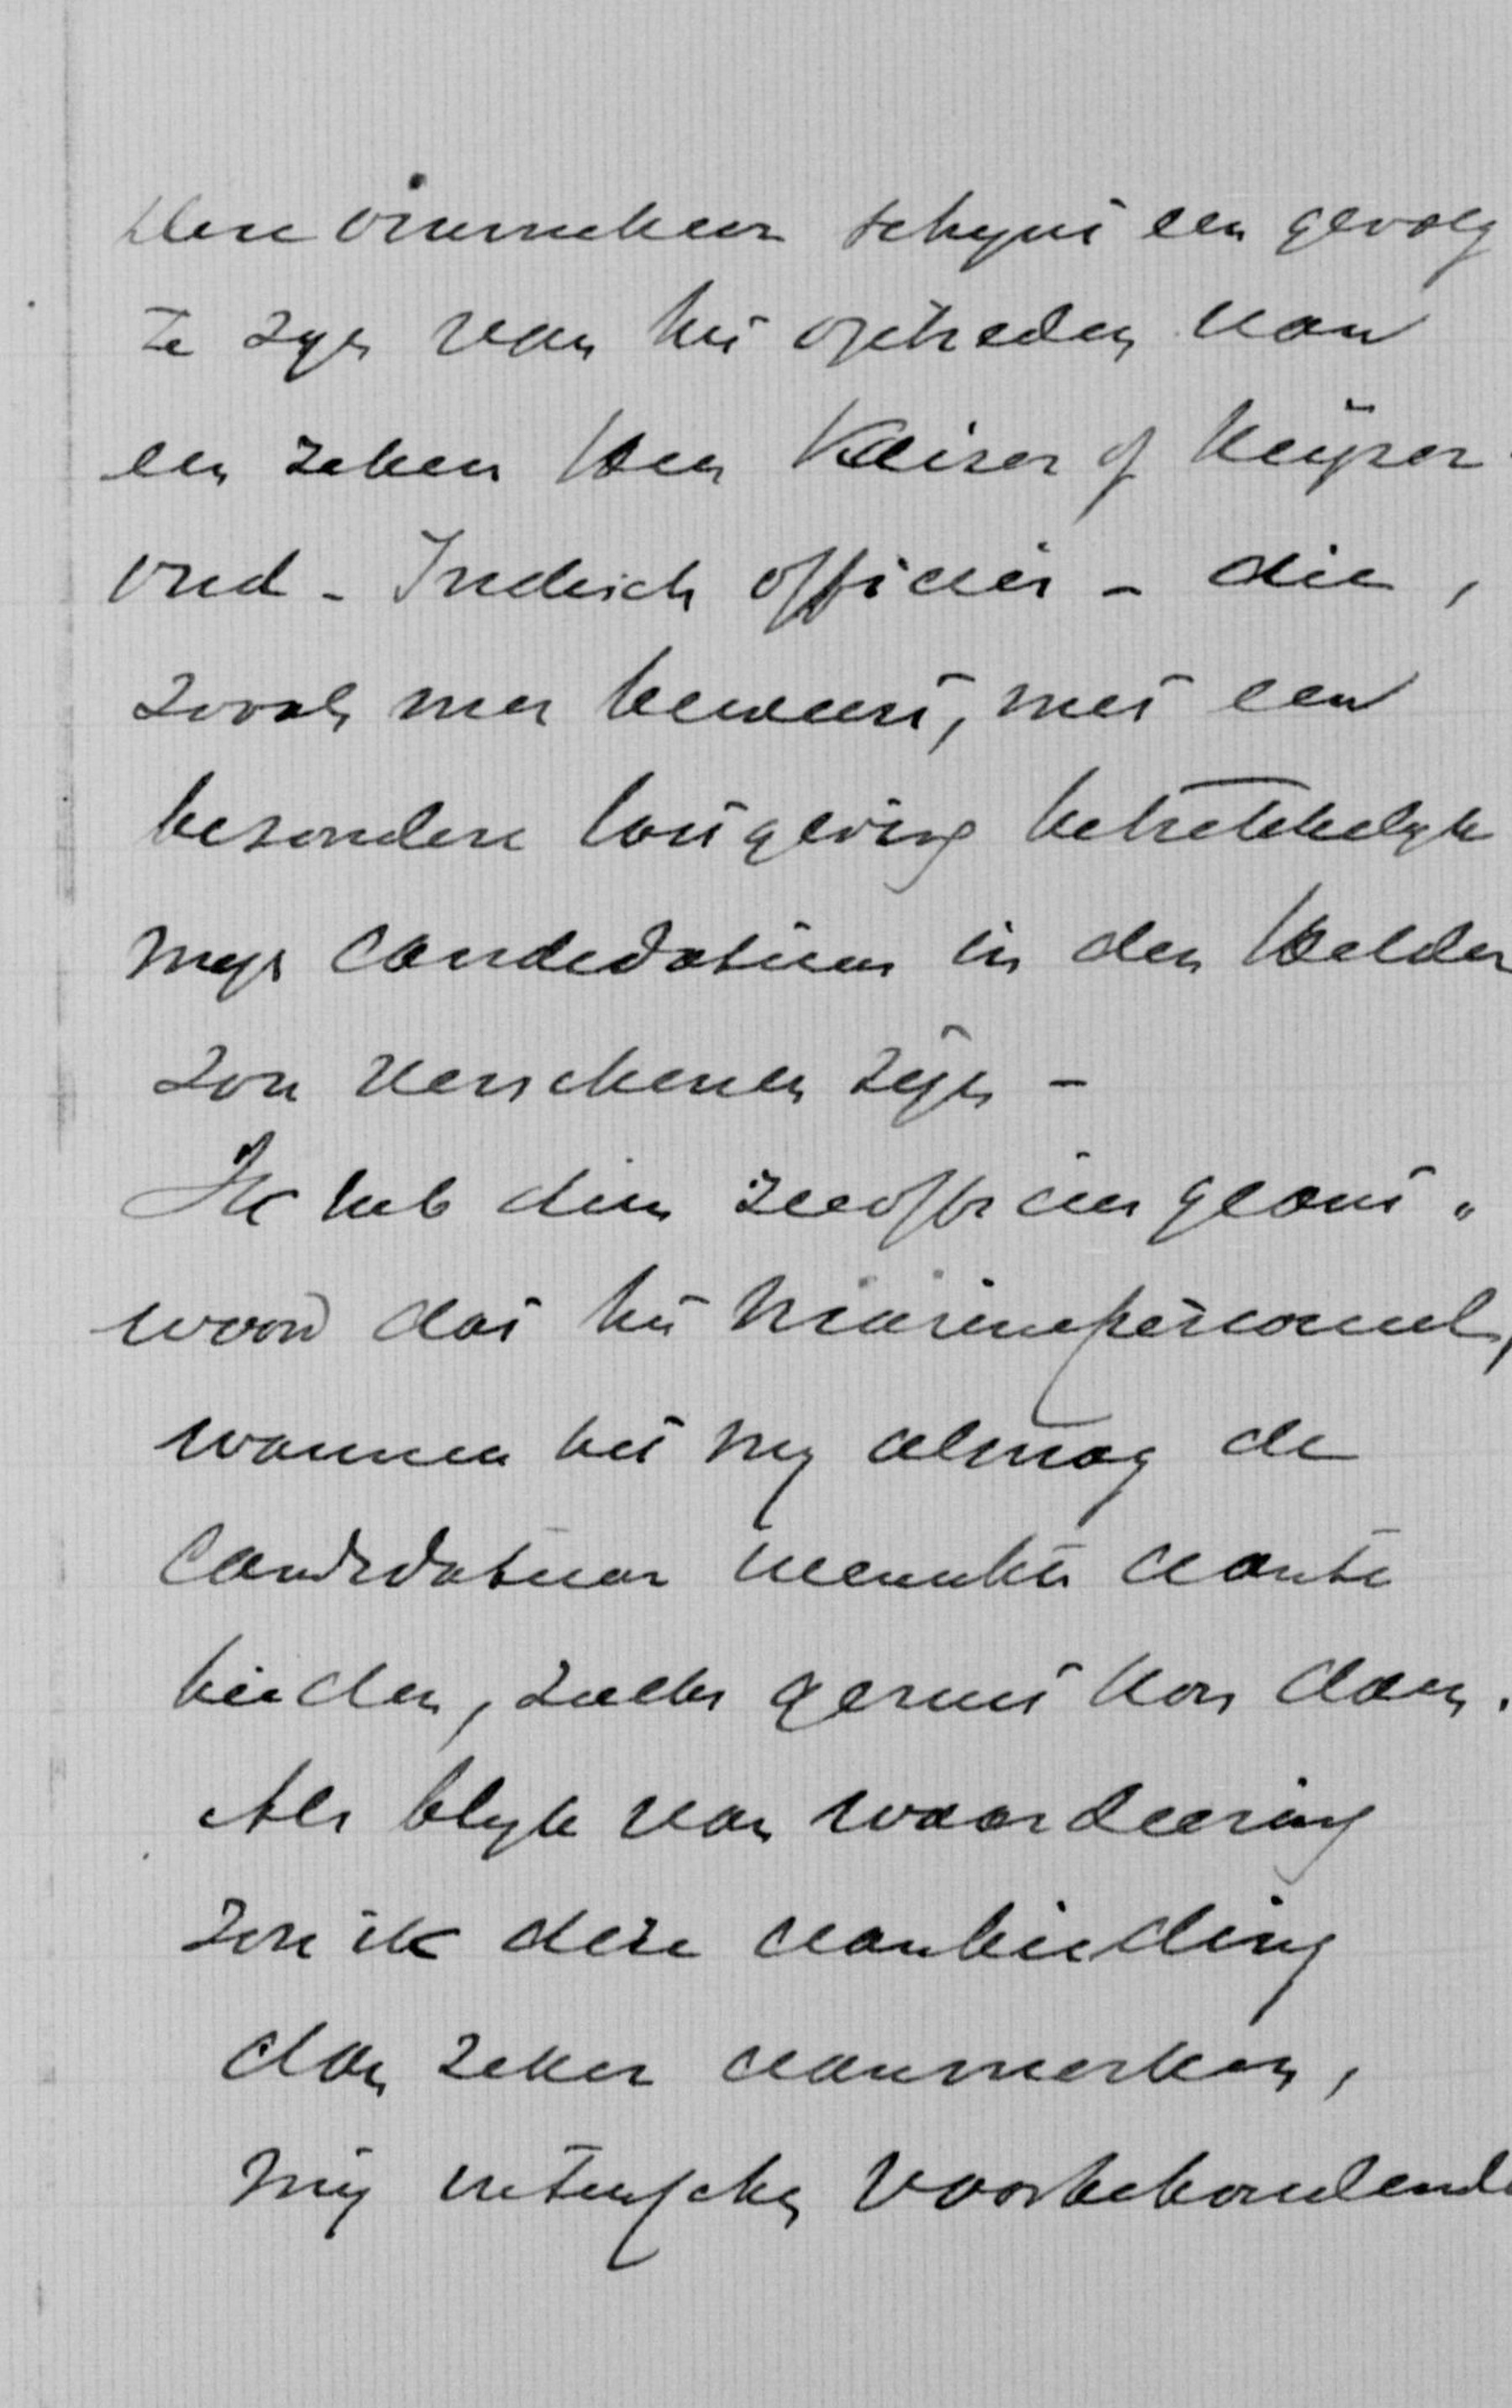 Deze ommekeer schynt een gevolg
te zyn van het optreden van
een zeker Heer Kaiser of Keijser
oud - Indisch officier - die,
zooals men beweert, met een
besondere lastgeving betrekkelyk
myn candidatuur in den Helder
zou verschenen zijn -
Ik heb dien zeeofficier geant„
woord dat het Marinepersoneel,
wanneer het my alsnog de
candidatuur wenschte aan te
bieden, zulks gerust kon doen.
Als blyk van waardeering
zou ik deze aanbieding
dan zeker aanmerken,
mij intusschen voorbehoudende